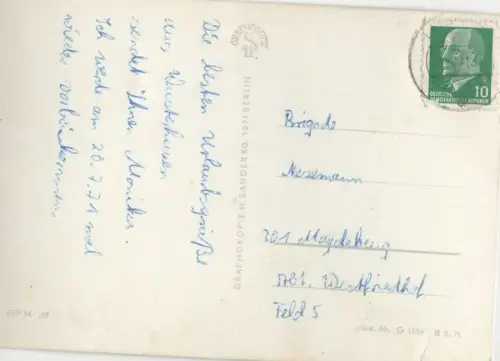 Die besten Urlaubsgrüße
aus Wusterhausen
sendet Ihnen Monika.
Ich werde am 20.7.71 mal
wieder vorbeikommen.
GRAPHOKOPIE H. SANDER KG, 1071 BERLIN
10
DEUTSCHE
DEMOKRATISCHE REPUBLIK
Brigade
301 Magdeburg
Westfriedhof
Feld 5